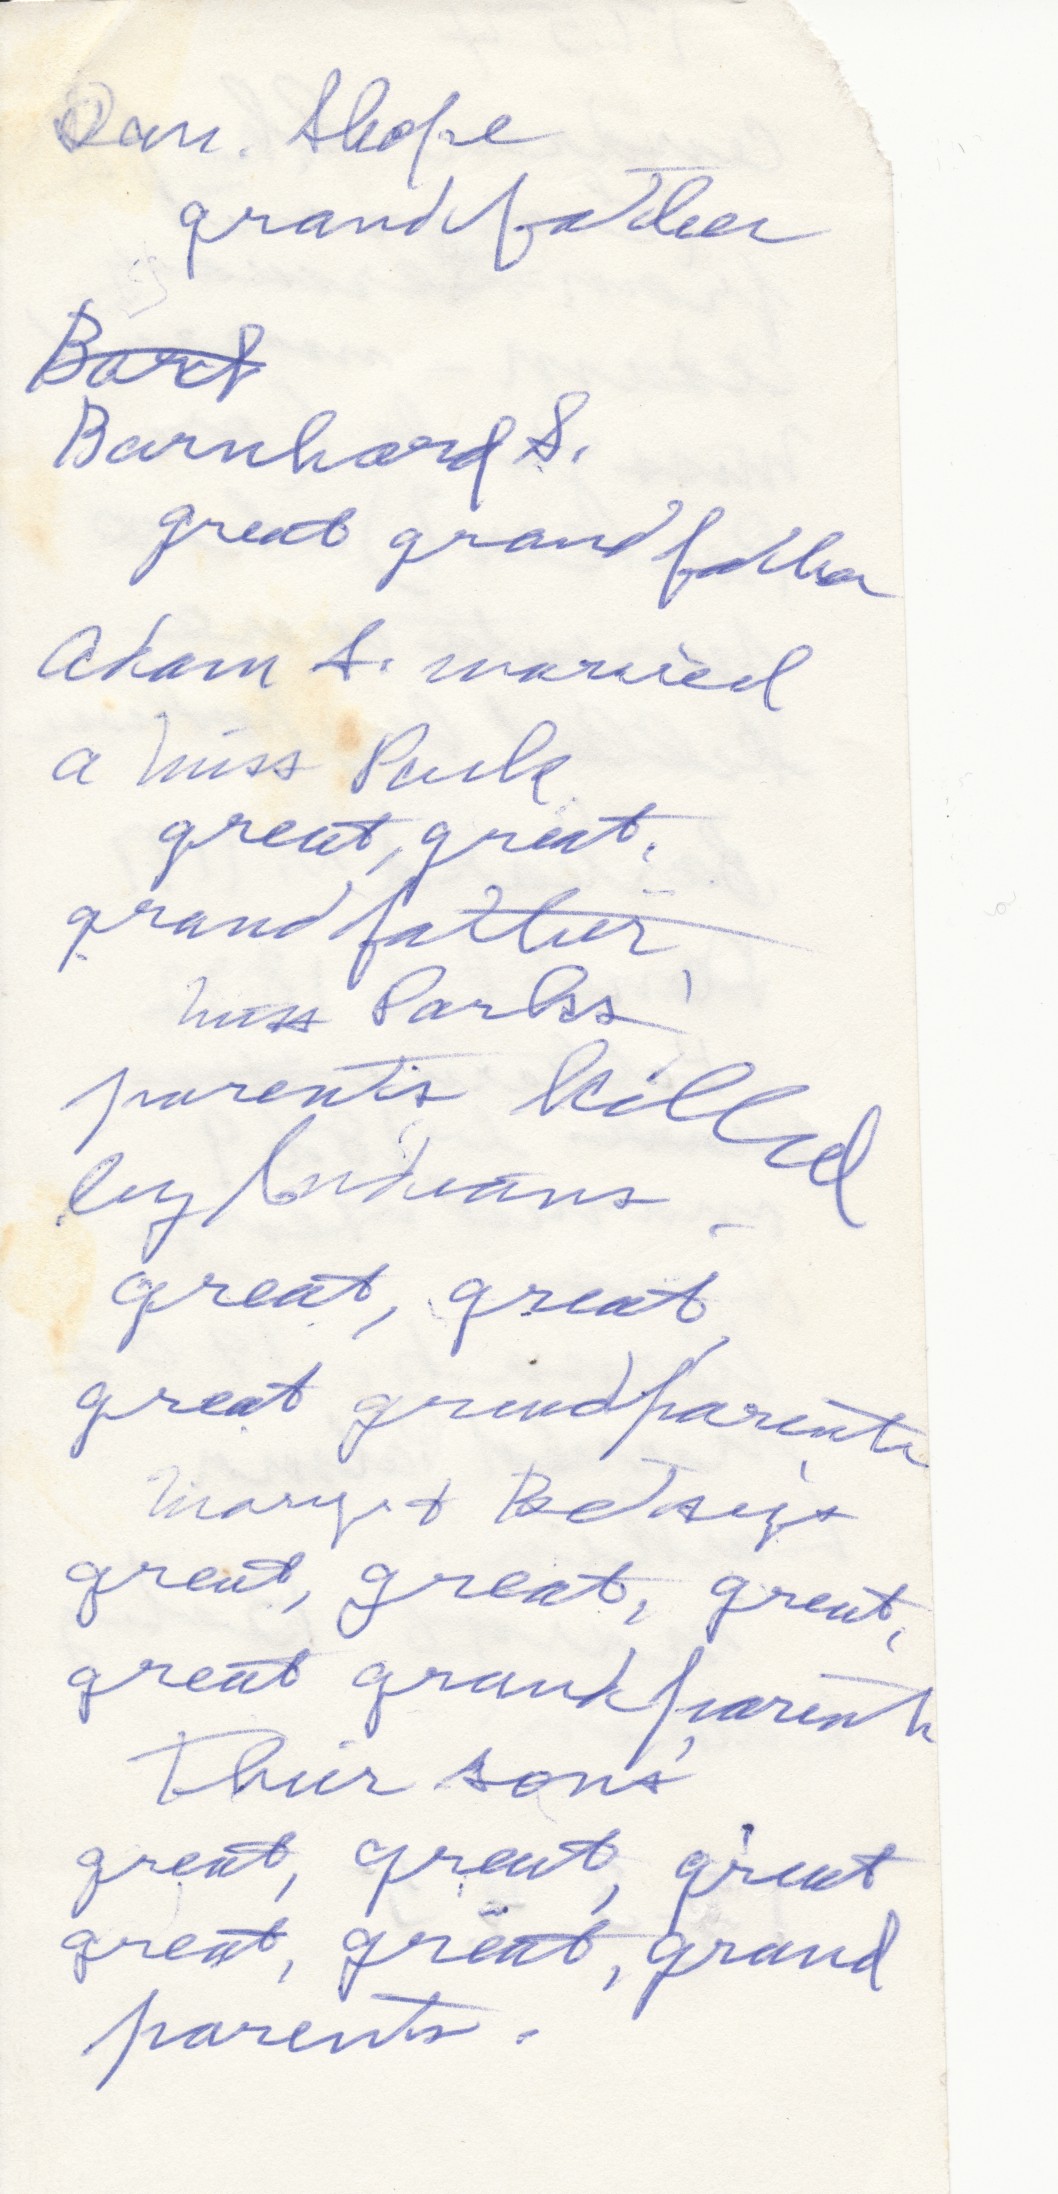 Dan. Shope
grandfather
Bard
Barnhard S.
great grandfather
Adam S. married
a Miss Park
great, great,
grandfather
Miss Parks'
parents killed
by Indians.
great, great
great grandparents
Mary & Betsy's
great, great, great,
great grandparents
Their sons'
great, great, great
great, great, grand
parents.